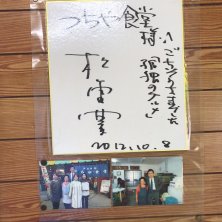 つちや食堂
様へ
ごちそうさまでした
孤独のグルメ
松重豊
2012.10.8